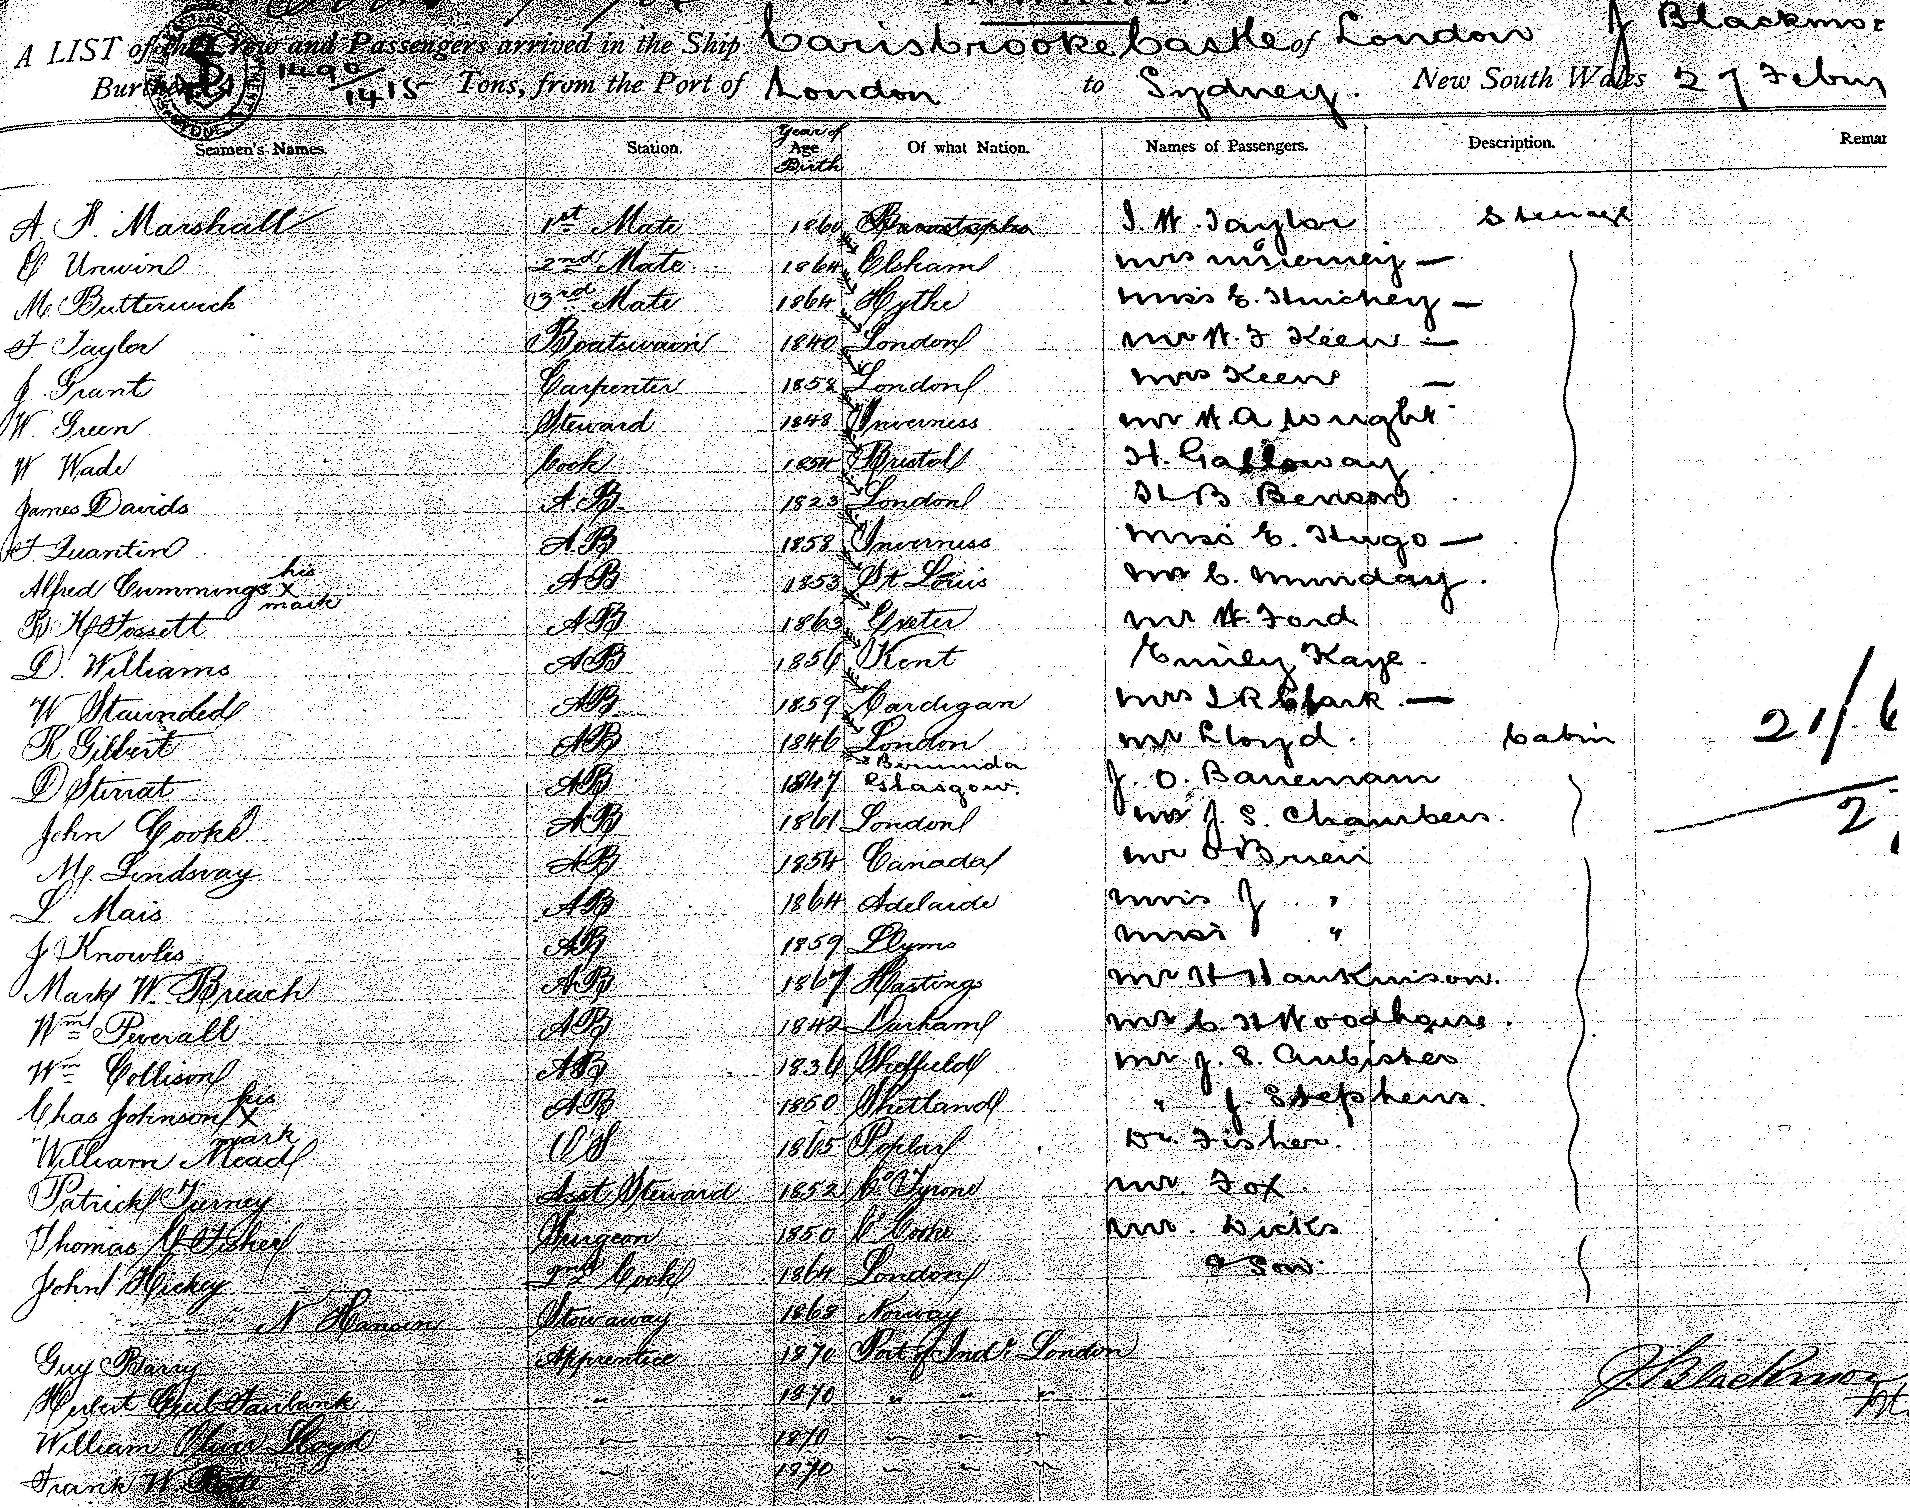 A LIST of the Crew and Passengers arrived in the Ship Carisbrooke Castle of London J Blackmore
Burthen 1490/1415 Tons, from the Port of London to Sydney. New South Wales 27 Febu
Seamen's Names. Station. Year of Age Birth Of what Nation. Names of Passengers. Description. Remar
A. Marshall 1st Mate 1860 Barnstaple J. W. Taylor Steerage
Unwin 2nd Mate 1864 Elsham Mrs
M. Butterwick 3rd Mate 1864 Hythe Miss E. —
F Taylor Boatswain 1840 London Mr W. F Keen —
J. Grant Carpenter 1858 London Mrs Keen —
W. Green Steward 1848 Inverness Mr W. A Wright
W Wade Cook 1854 Bristol H. Galloway
James Davids A.B. 1823 London B Benson
F Quantin A.B 1858 Inverness Miss E. Hugo —
Alfred Cummings his x mark AB 1853 St Louis Mr C. Munday.
B H Fossett AB 1863 Exeter Mr W. Ford
D. Williams AB 1856 Kent Emily Kaye.
W Staunded AB 1859 Cardigan Mrs J R Clark. —
R Gilbert AB 1846 London Mr Lloyd. Cabin 21/6
D Sterrat AB 1847 Bermuda Glasgow. J. O. Banemam
John Cooke AB 1861 London Mr J. S. Chambers. 2
M. Lindsray AB 1854 Canada Mr O'Brien
L Mais AB 1864 Adelaide Miss J "
J Knowles AB 1859 Llyms Miss "
Mark W. Breach AB 1867 Hastings Mr H Hankinson.
Wm Peverall AB 1842 Durham Mr C H Woodhouse.
Wm Collison AB 1836 Sheffield Mr J. S.
Chas Johnson his x mark AB 1850 Shetland " J. Stephens.
William Mead OS 1865 Poplar Dr Fisher.
Patrick Turney Asst Steward 1852 Co Tyrone Mr. Fox
Thomas Fisher Surgeon 1850 Mr. Dicks
John Hickey 2nd Cook 1864 London & Son.
N Hansen Stowaway 1868 Norway
Guy Barry Apprentice 1870 Port of Indr London
Herbert Cecil Fairbank " 1870 " " "
William Oliver Lloyd " 1870 " " "
Frank W. " 1870 " " "
J. Blackmore